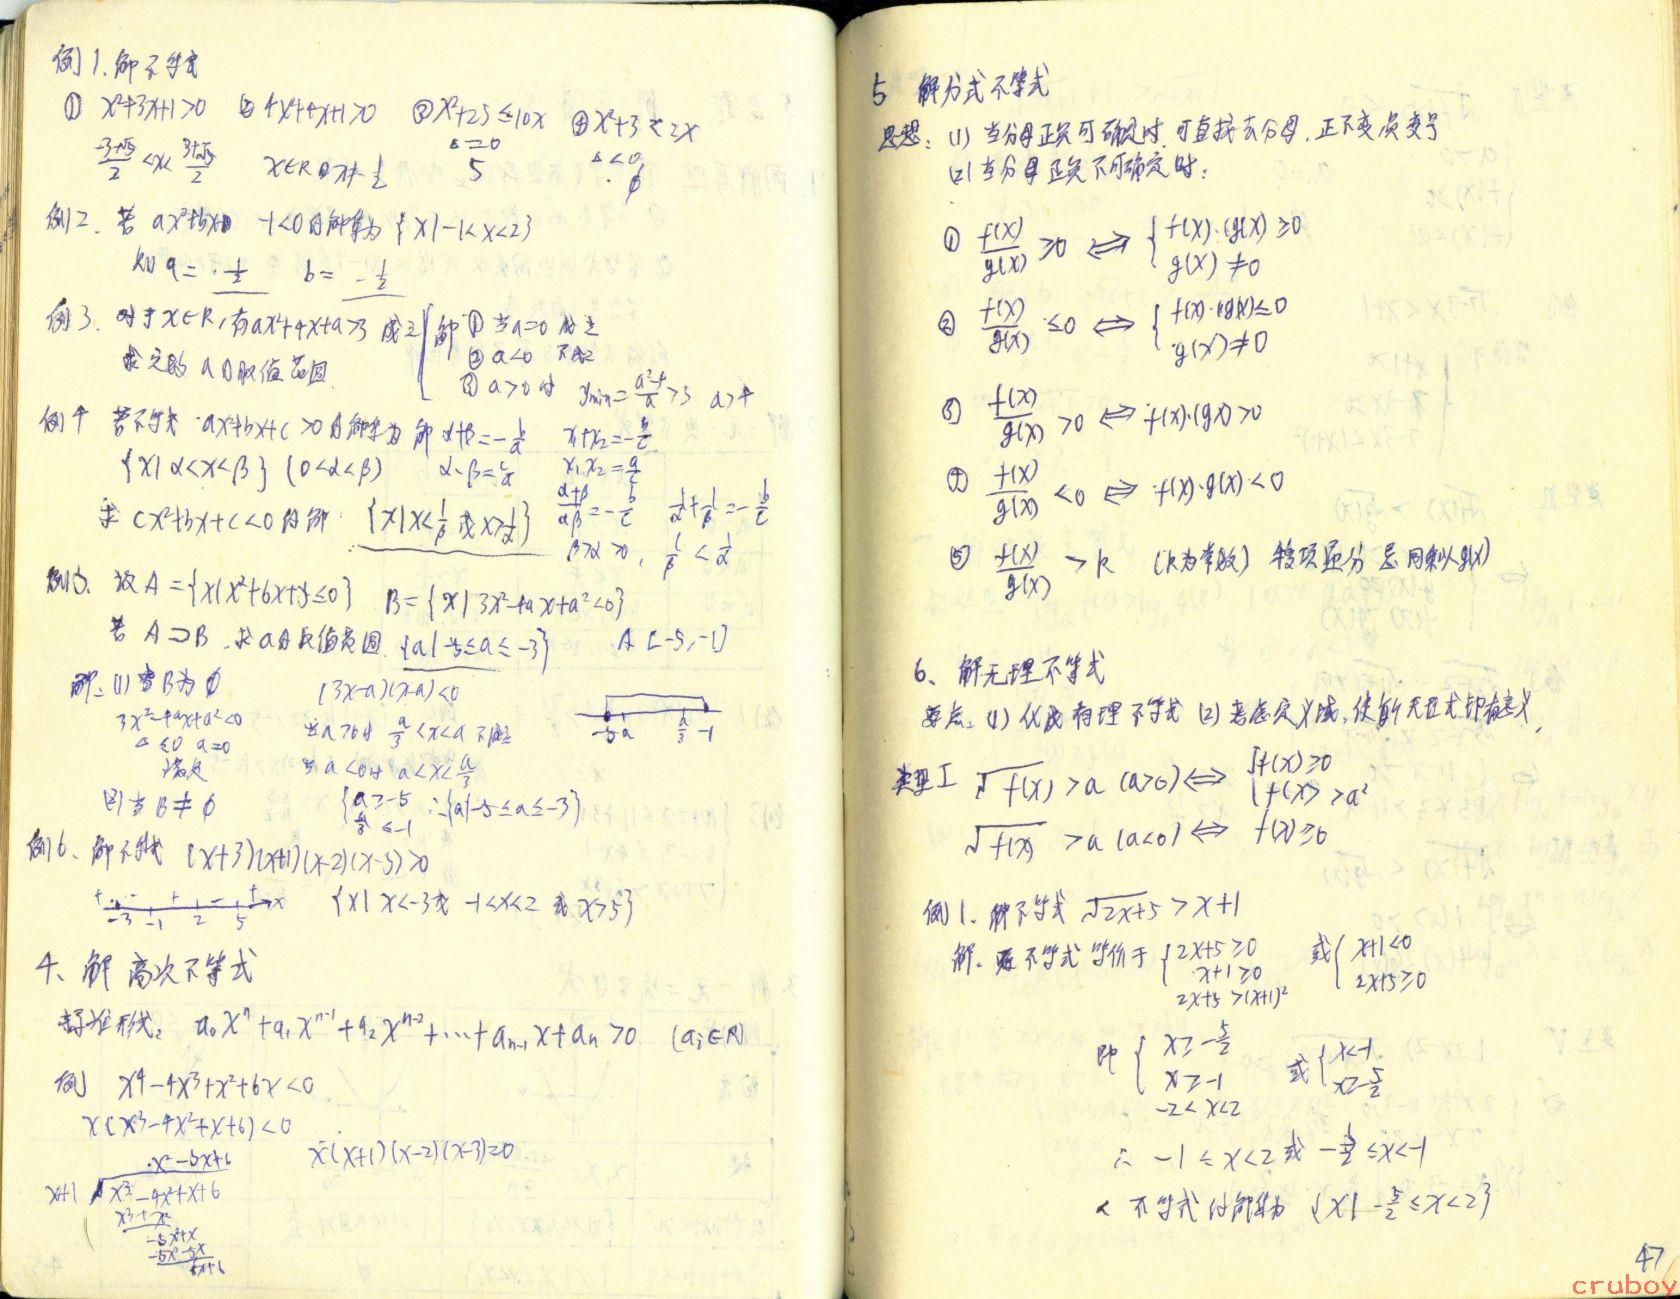 例1、解不等式
① x²+3x+1>0 ② 4x²+4x+1>0 ③ x²+25≤10x ④ x²+3<2x
-3+√5/2 <x< 3+√5/2 x∈R 且x≠-1/2 △=0 5 △<0, ∅
例2、若 ax²+bx -1<0的解集为 {x|-1<x<2}
则 a= 1/2 b= -1/2
例3、对于x∈R,有ax²+4x+a>3 成立
求实数 a的取值范围
解 ① 当a=0 不成立
② a<0 不成立
③ a>0时 ymin= a²-4/a >3 a>4
例4 若不等式 ax²+bx+c>0的解集为
{x|α<x<β} (0<α<β)
求 cx²+bx+c<0的解 {x|x<1/β 或 x>1/α}
解 α+β=-b/a x₁+x₂=-b/c
α·β=c/a x₁x₂=a/c
α+β/αβ=-b/c 1/α+1/β=-b/c
β>α>0, 1/β<1/α
例5、设A={x|x²+6x+5≤0} B={x|3x²-4ax+a²<0}
若 A⊃B 求a的取值范围 {a|-5≤a≤-3} A [-5,-1]
解:(1)当B为∅ (3x-a)(x-a)<0
3x²-4ax+a²<0 当a>0时 a/3<x<a 不成立
△≤0 a=0 当a<0时 a<x<a/3
满足
(2)当B≠∅ {a≥-5 a/3≤-1 ∴{a|-5≤a≤-3}
-5 a a/3 -1
例6、解不等式 (x+3)(x+1)(x-2)(x-5)>0
+ - + - + x
-3 -1 2 5
{x|x<-3或 -1<x<2 或 x>5}
4、解高次不等式
标准形式: a₀xⁿ+a₁xⁿ⁻¹+a₂xⁿ⁻²+…+aₙ₋₁x+aₙ>0 (aᵢ∈R)
例 x⁴-4x³+x²+6x<0
x(x³-4x²+x+6)<0
x(x+1)(x-2)(x-3)=0
x²-5x+6
x+1 x³-4x²+x+6
x³+x²
-5x²+x
-5x²-5x
6x+6
5 解分式不等式
思想:(1)当分母正负可确定时,可直接去分母,正不变负变号
(2)当分母正负不可确定时:
① f(x)/g(x) ≥0 ⇔ { f(x)·(g(x)≥0
g(x)≠0
② f(x)/g(x) ≤0 ⇔ { f(x)·(g(x)≤0
g(x)≠0
③ f(x)/g(x) >0 ⇔ f(x)·(g(x)>0
④ f(x)/g(x) <0 ⇔ f(x)·g(x)<0
⑤ f(x)/g(x) >k (k为常数) 移项通分 忌同乘以g(x)
6、解无理不等式
要点:(1)化成有理不等式 (2)考虑定义域,使所无理式都有意义,
类型I √f(x) >a (a>0) ⇔ { f(x)≥0
f(x)>a²
√f(x) >a (a<0) ⇔ f(x)≥0
例1、解不等式 √2x+5 >x+1
解、原不等式等价于 { 2x+5≥0 或 { x+1<0
x+1≥0 2x+5≥0
2x+5>(x+1)²
即 { x≥-5/2 或 { x<-1
x≥-1 x≥-5/2
-2<x<2
∴ -1≤x<2 或 -5/2≤x<-1
不等式的解集为 {x|-5/2≤x<2}
47
cruboy